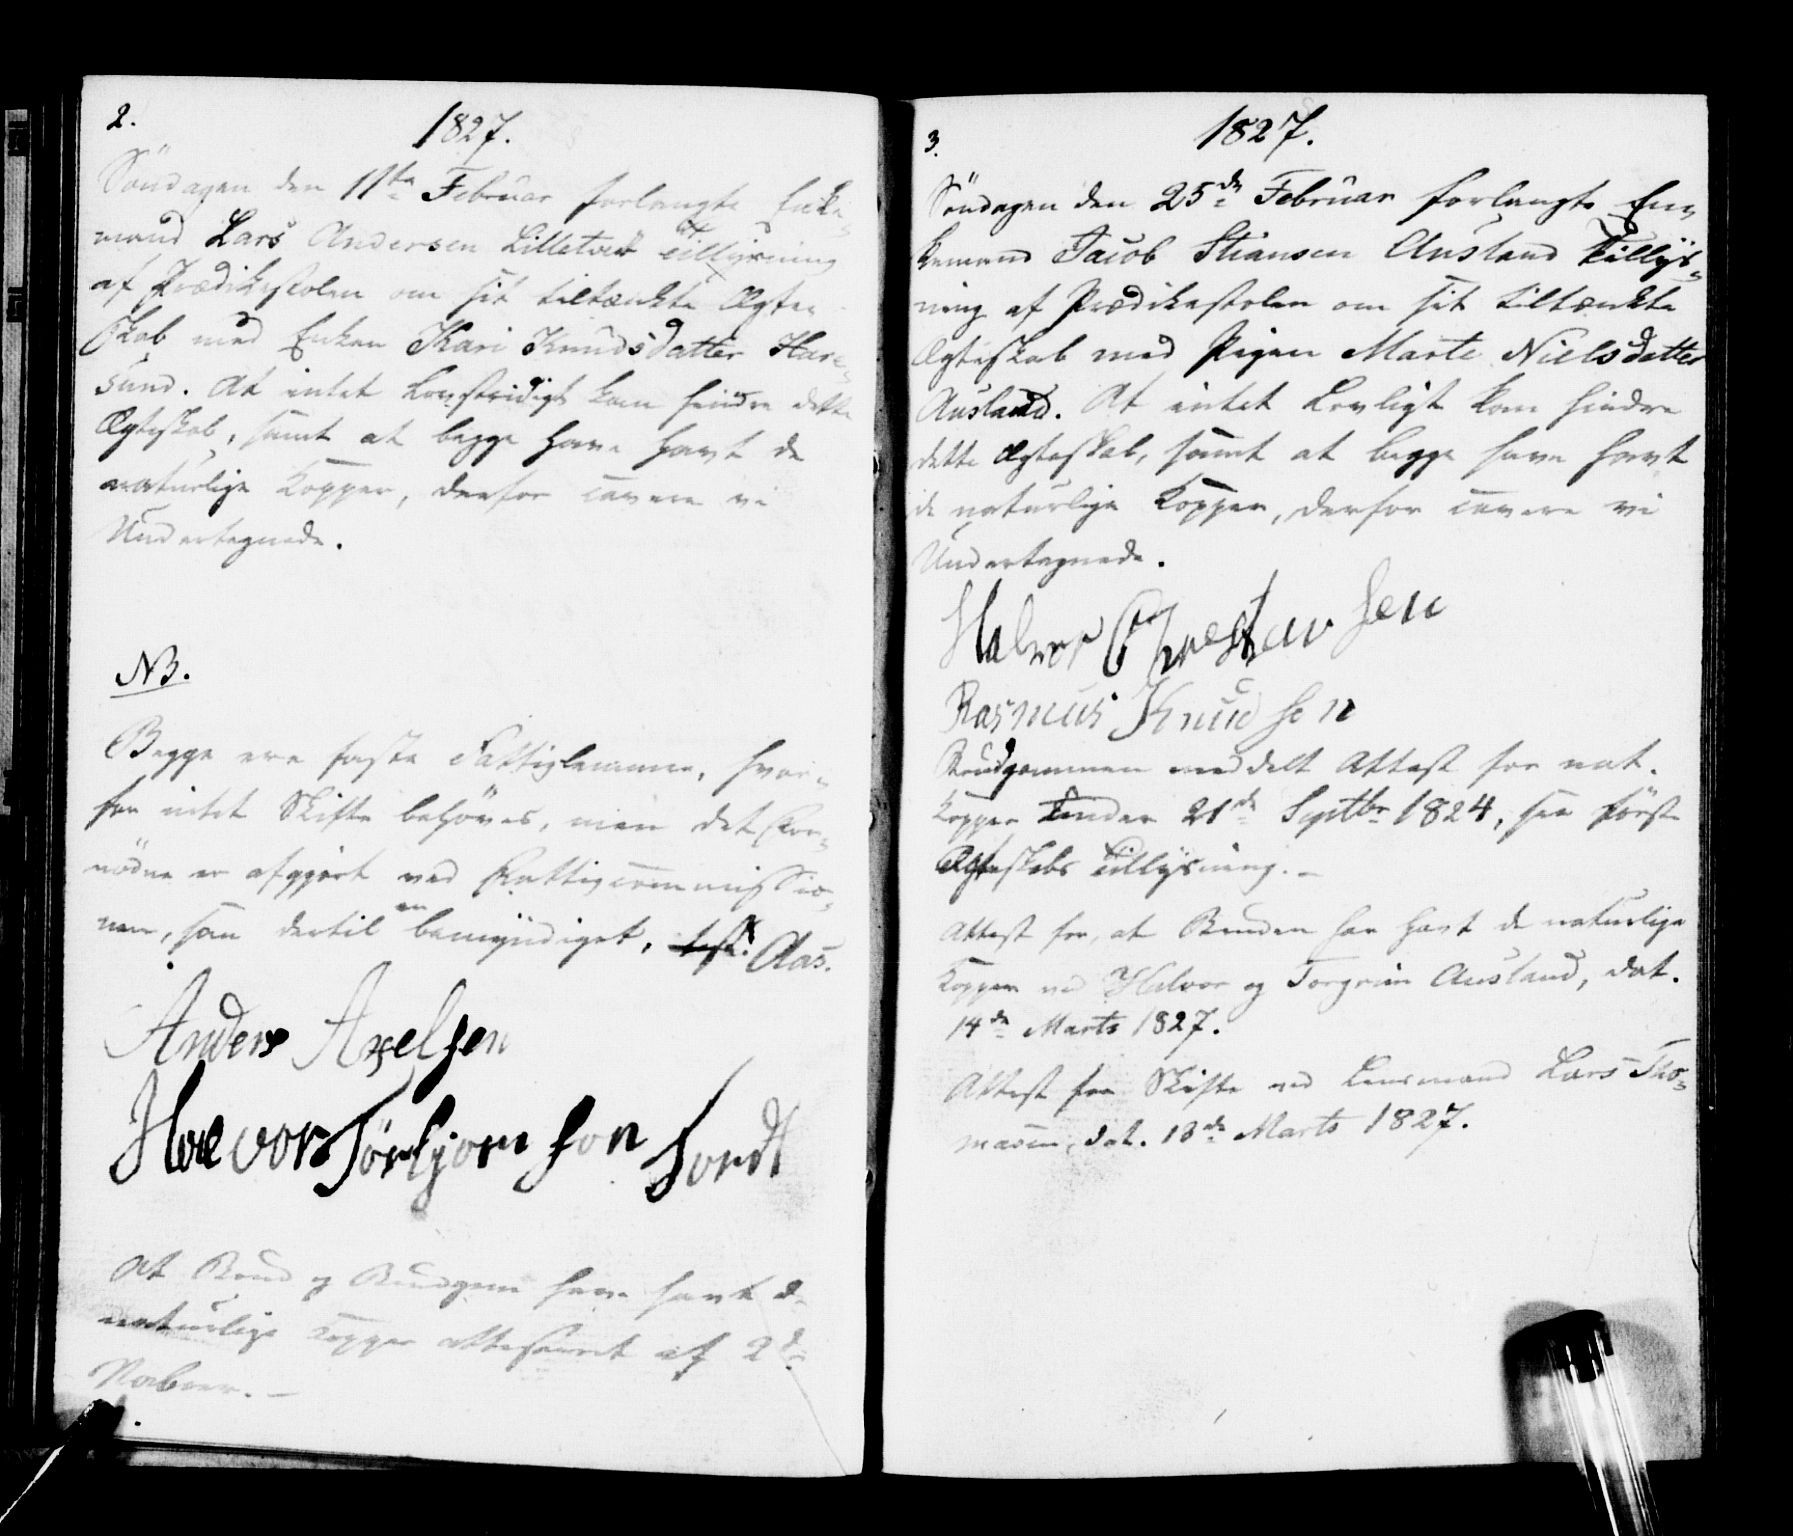 2.
1827.
Söndagen den 11te Februar forlangte Enke-
mand Lars Andersen Lilletvet Tillysning
af Prædikestolen om sit tiltænkte Ægte-
skab med Enken Kari Knudsdatter Hare-
sund. At intet Lovstridigt kan hindre dette
Ægteskab, samt at begge have havt de
naturlige Kopper, derfor cavere vi
Undertegnede.
NB.
Begge ere faste Fattiglemmer, hvor-
for intet Skifte behöves, men det For-
nödne er afgjort ved Fattigcommissio-
nen, som dertil er bemyndiget, Aas.
Anders Axelsen
Halvor Törbjornson
At Brud og Brudgom have havt de
naturlige Kopper attesteret af 2de
Naboer. -
3.
1827.
Söndagen den 25de Februar forlangte En-
kemand Jacob Stiansen Ausland Tillys-
ning af Prædikestolen om sit tiltænkte
Ægteskab med Pigen Marte Nielsdatter
Ausland. At intet Lovligt kan hindre
dette Ægteskab, samt at begge have havt
de naturlige Kopper, derfor cavere vi
Undertegnede.
Halvor Chrestensen
Rasmus Knudsen
Brudgommen meddelt Attest for nat.
Kopper under 21de Septbr 1824, see förste
Ægteskabs Tillysning. -
Attest for, at Bruden har havt de naturlige
Kopper ved Halvor og Torgrim Ausland, dat.
14de Marts 1827.
Attest for Skifte ved Lensmand Lars Tho-
masen, dat. 13de Marts 1827.